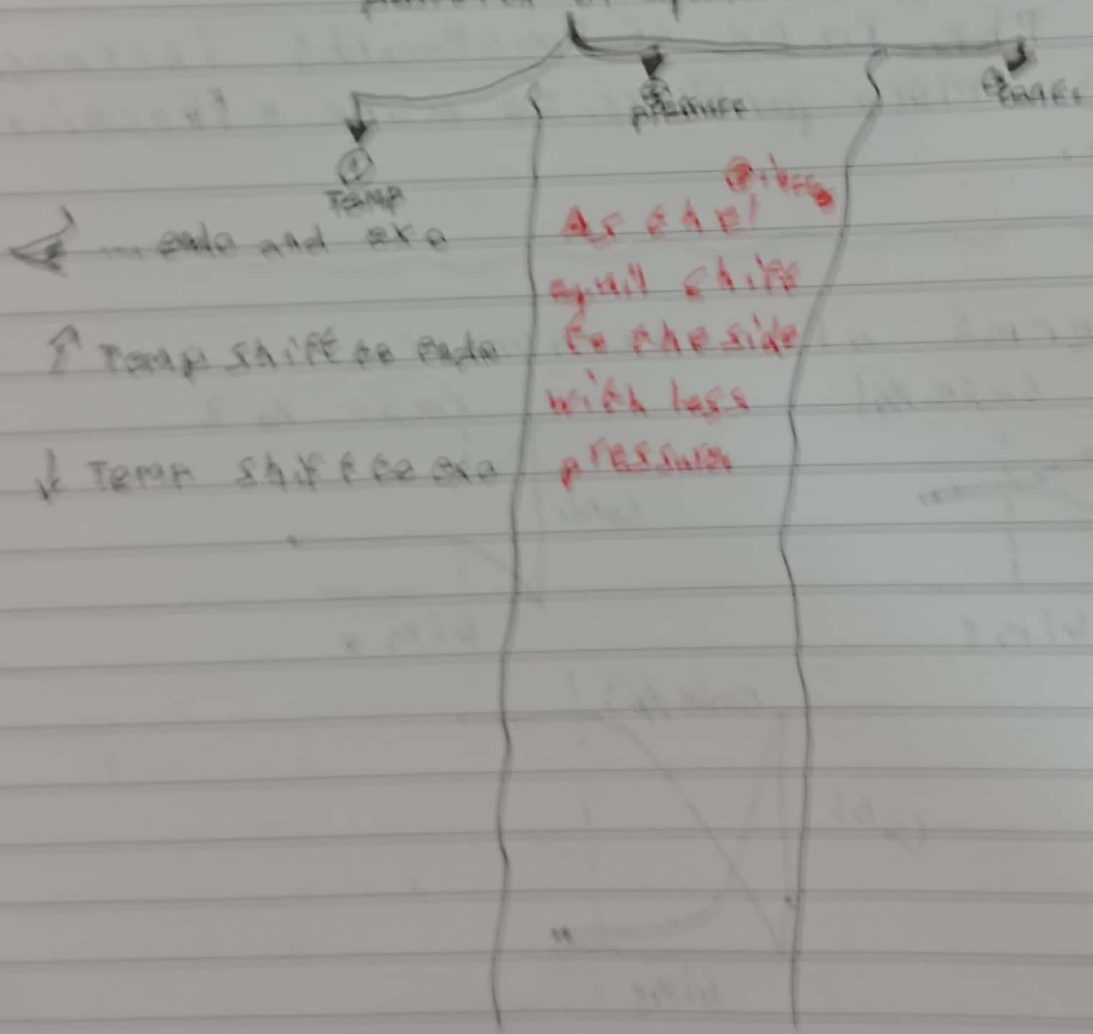 ①
Temp
endo and exo
↑ Temp shift to endo
↓ Temp shift to exo
pressure
As the
equil shift
to the side
with less
pressure